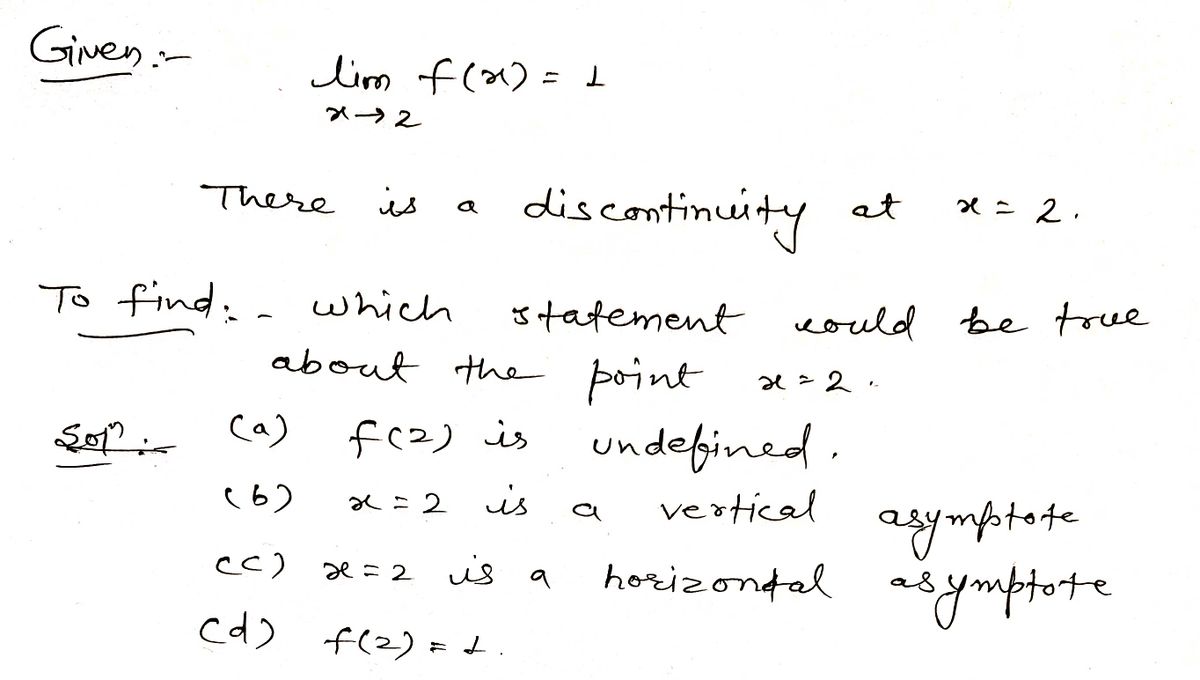 Given :-
lim f(x) = 1
x→2
There is a discontinuity at x = 2.
To find :- which statement could be true
about the point x = 2.
Solⁿ :- (a) f(2) is undefined.
(b) x = 2 is a vertical asymptote
(c) x = 2 is a horizontal asymptote
(d) f(2) = 1.